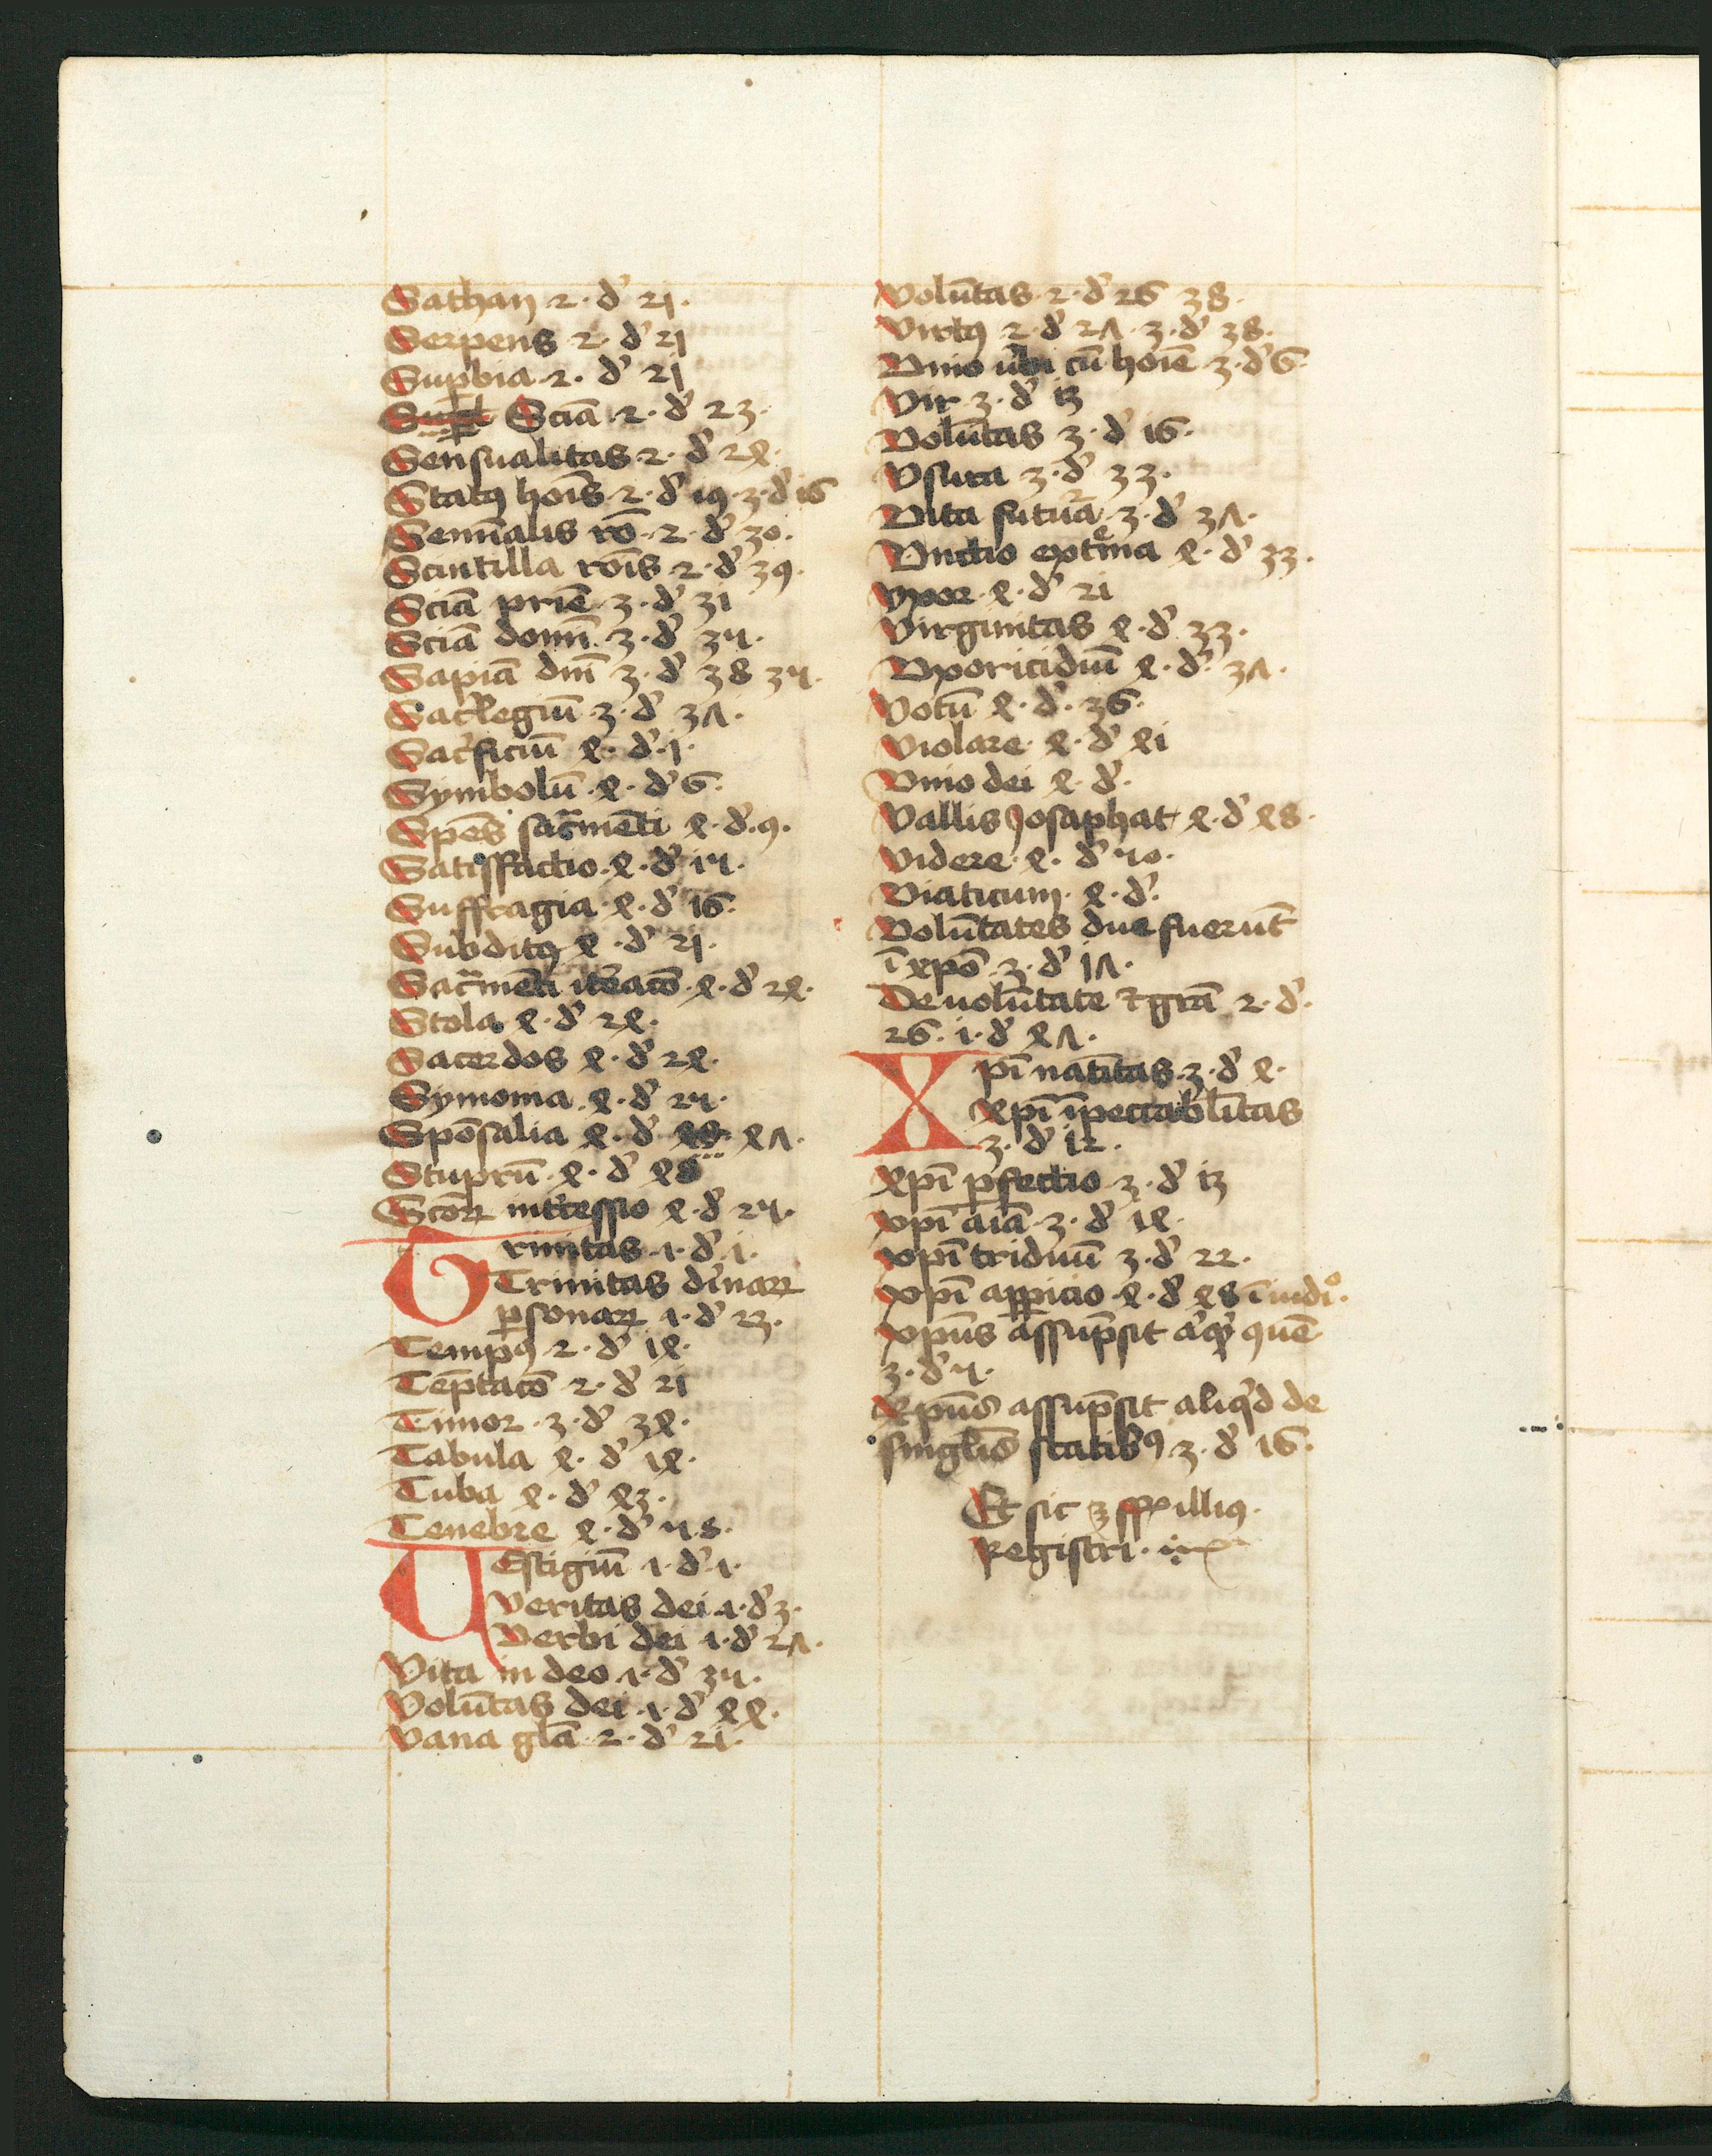 Sathan 2. d' 21.
Serpens 2. d' 21
Suꝑbia 2. d' 21
Sciā 2. d' 23.
Sensualitas 2. d' 24.
Statꝰ hoīs 2. d' 19. 3. d' 16
Semīalis rō. 2. d' 30.
Scintilla rōīs 2. d' 39.
Sciā priē 3. d' 31
Sciā donū 3. d' 35.
Sapiā dni 3. d' 38 35.
Sac̾legiū 3. d' 37.
Sac̾ficiū 4. d' 1.
Symbolū 4. d' 6.
Spēs sac̾mēti 4. d'. 9.
Satisfactio 4. d' 15.
Suffragia 4. d' 16.
Subditꝰ 4. d' 21.
Sac̾mēti iteacō 4. d' 24.
Stola 4. d' 24.
Sacerdos 4. d' 24.
Symonia 4. d' 25.
Spōsalia 4. d' 48 47.
Stuprū 4. d' 48
Scōꝝ int̾cessio 4. d' 25.
Trinitas 1. d' 1.
Trinitas diuinaꝝ
ꝑsonaꝝ 1. d' 23.
Tempꝰ 2. d' 14.
Tēptacō 2. d' 21
Timor 3. d' 34.
Tabula 4. d' 14.
Tuba 4. d' 43.
Tenebre 4. d' 58.
Vestigiū 1. d' 1.
Veritas dei 1. d' 3.
Verbi dei 1. d' 27.
Vita in deo 1. d' 35.
Volūtas dei 1. d' 44.
Vana glā 2. d' 21.
Volūtas 2. d' 26 38.
Virtꝰ 2. d' 27. 3. d' 38.
Vnio ūbi cū hoīe 3. d' 6.
Vir 3. d' 13
Volūtas 3. d' 16.
Vsura 3. d' 33.
Vita futura 3. d' 37.
Vnctio extrema 4. d' 33.
Vxor 4. d' 21
Virginitas 4. d' 33.
Vxoricidiū 4. d' 37.
Votū 4. d'. 36.
Violare 4. d' 41
Vnio dei 4. d'.
Vallis Josaphat 4. d' 48.
Videre 4. d' 50.
Viaticum 4. d'.
Volūtates due fuerūt
ī xpō 3. d' 17.
De uolūtate ⁊ grā 2. d'.
26. 1. d' 47.
Xpī natītas 3. d' 4.
Xpī īpeccab̾litas
3. d' 12.
Xpī ꝑfectio 3. d' 13
Xpī aīa 3. d' 14.
Xpī triduū 3. d' 22.
Xpī appicio 4. d' 48 ī iudiº.
Xpūs assūpsit quē
3. d' 5.
Xpūs assūpsit aliq̇d de
singlīs statibꝰ 3. d' 16.
Et sic illiꝰ
Registri.